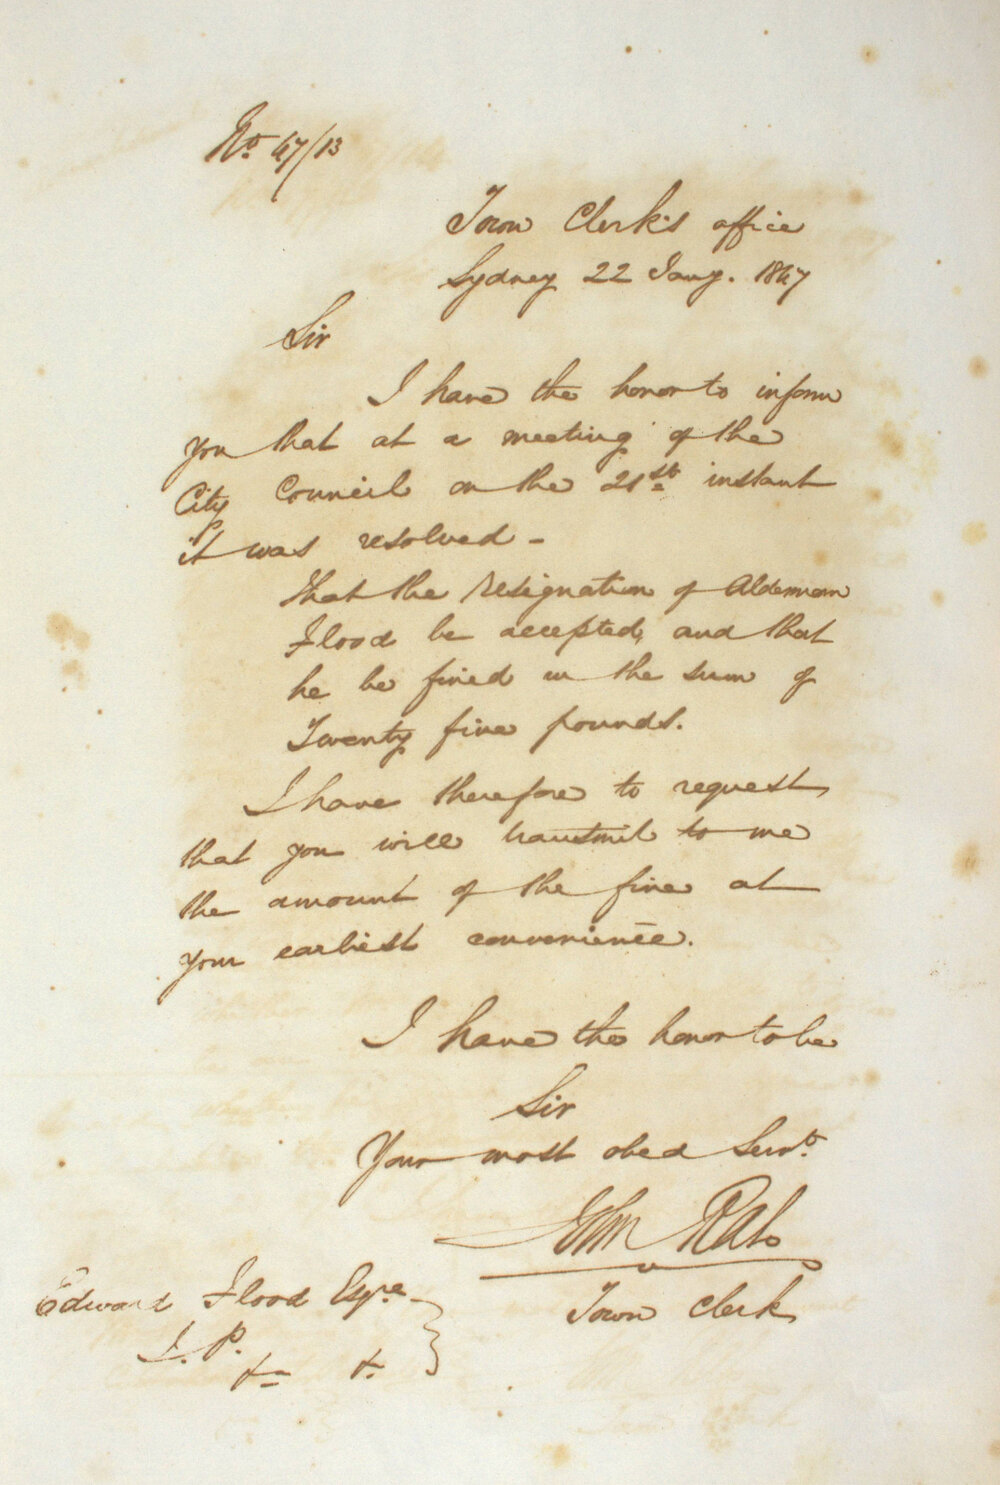 No. 47/13
Town Clerk's office
Sydney 22 Jany. 1847
Sir
I have the honor to inform
you that at a meeting of the
City Council on the 21st instant
it was resolved -
that the resignation of Alderman
Flood be accepted, and that
he be fined in the sum of
Twenty five pounds.
I have therefore to request
that you will transmit to me
the amount of the fine at
your earliest convenience.
I have the honor to be
Sir
Your most obed Servt.
John Rae
Town Clerk
Edward Flood Esqre.
J. P.
&c &c